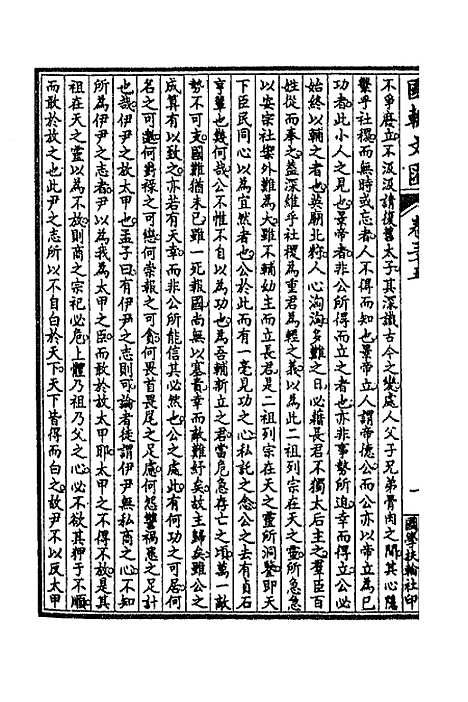 國朝文滙　卷三十五　一　國學扶輪社印
不爭廢立不汲汲請復舊太子其深識古今之變處人父子兄弟骨肉之間其心隱
繫乎社稷而無時或忘者人不得而知也景帝立人謂帝德公而公亦以帝立爲已
功者此小人之見也景帝者非公所得而立之者也亦非事勢所迫幸而得立公必
始終以輔之者也英廟北狩人心洶洶多難之日必藉長君不獨太后主之羣臣百
姓從而奉之蓋深維乎社稷爲重君爲輕之義以爲此二祖列宗在天之靈所急急
以安宗社禦外難爲大雖不輔幼主而立長君是二祖列宗在天之靈所洞鑒即天
下臣民同心以爲宜然者也公於此而有一毫見功之心私託之念公之去有貞石
亨輩也幾何哉公不惟不自以爲功也爲吾輔新立之君當危急存亡之頃萬一敵
勢不可支國難猶未已雖一死報國尚無以塞責幸而敵難紓矣故主歸矣雖公之
成算有以致之亦若有天幸而非公所能信其必然也公之處此有何功之可居何
名之可邀何爵祿之可戀何崇報之可貪何畏首畏尾之足慮何怨讐禍患之足計
也哉伊尹之放太甲也孟子曰有伊尹之志則可論者徒謂伊尹無私商之心不知
所爲伊尹之志者尹以爲我爲太甲之臣而敢於放太甲耶太甲之不得不放是其
祖在天之靈以爲不放則商之宗祀必危上體乃祖乃父之心必不欲其狎于不順
而敢於放之也此尹之志所以不自白於天下天下皆得而白之故尹不以反太甲